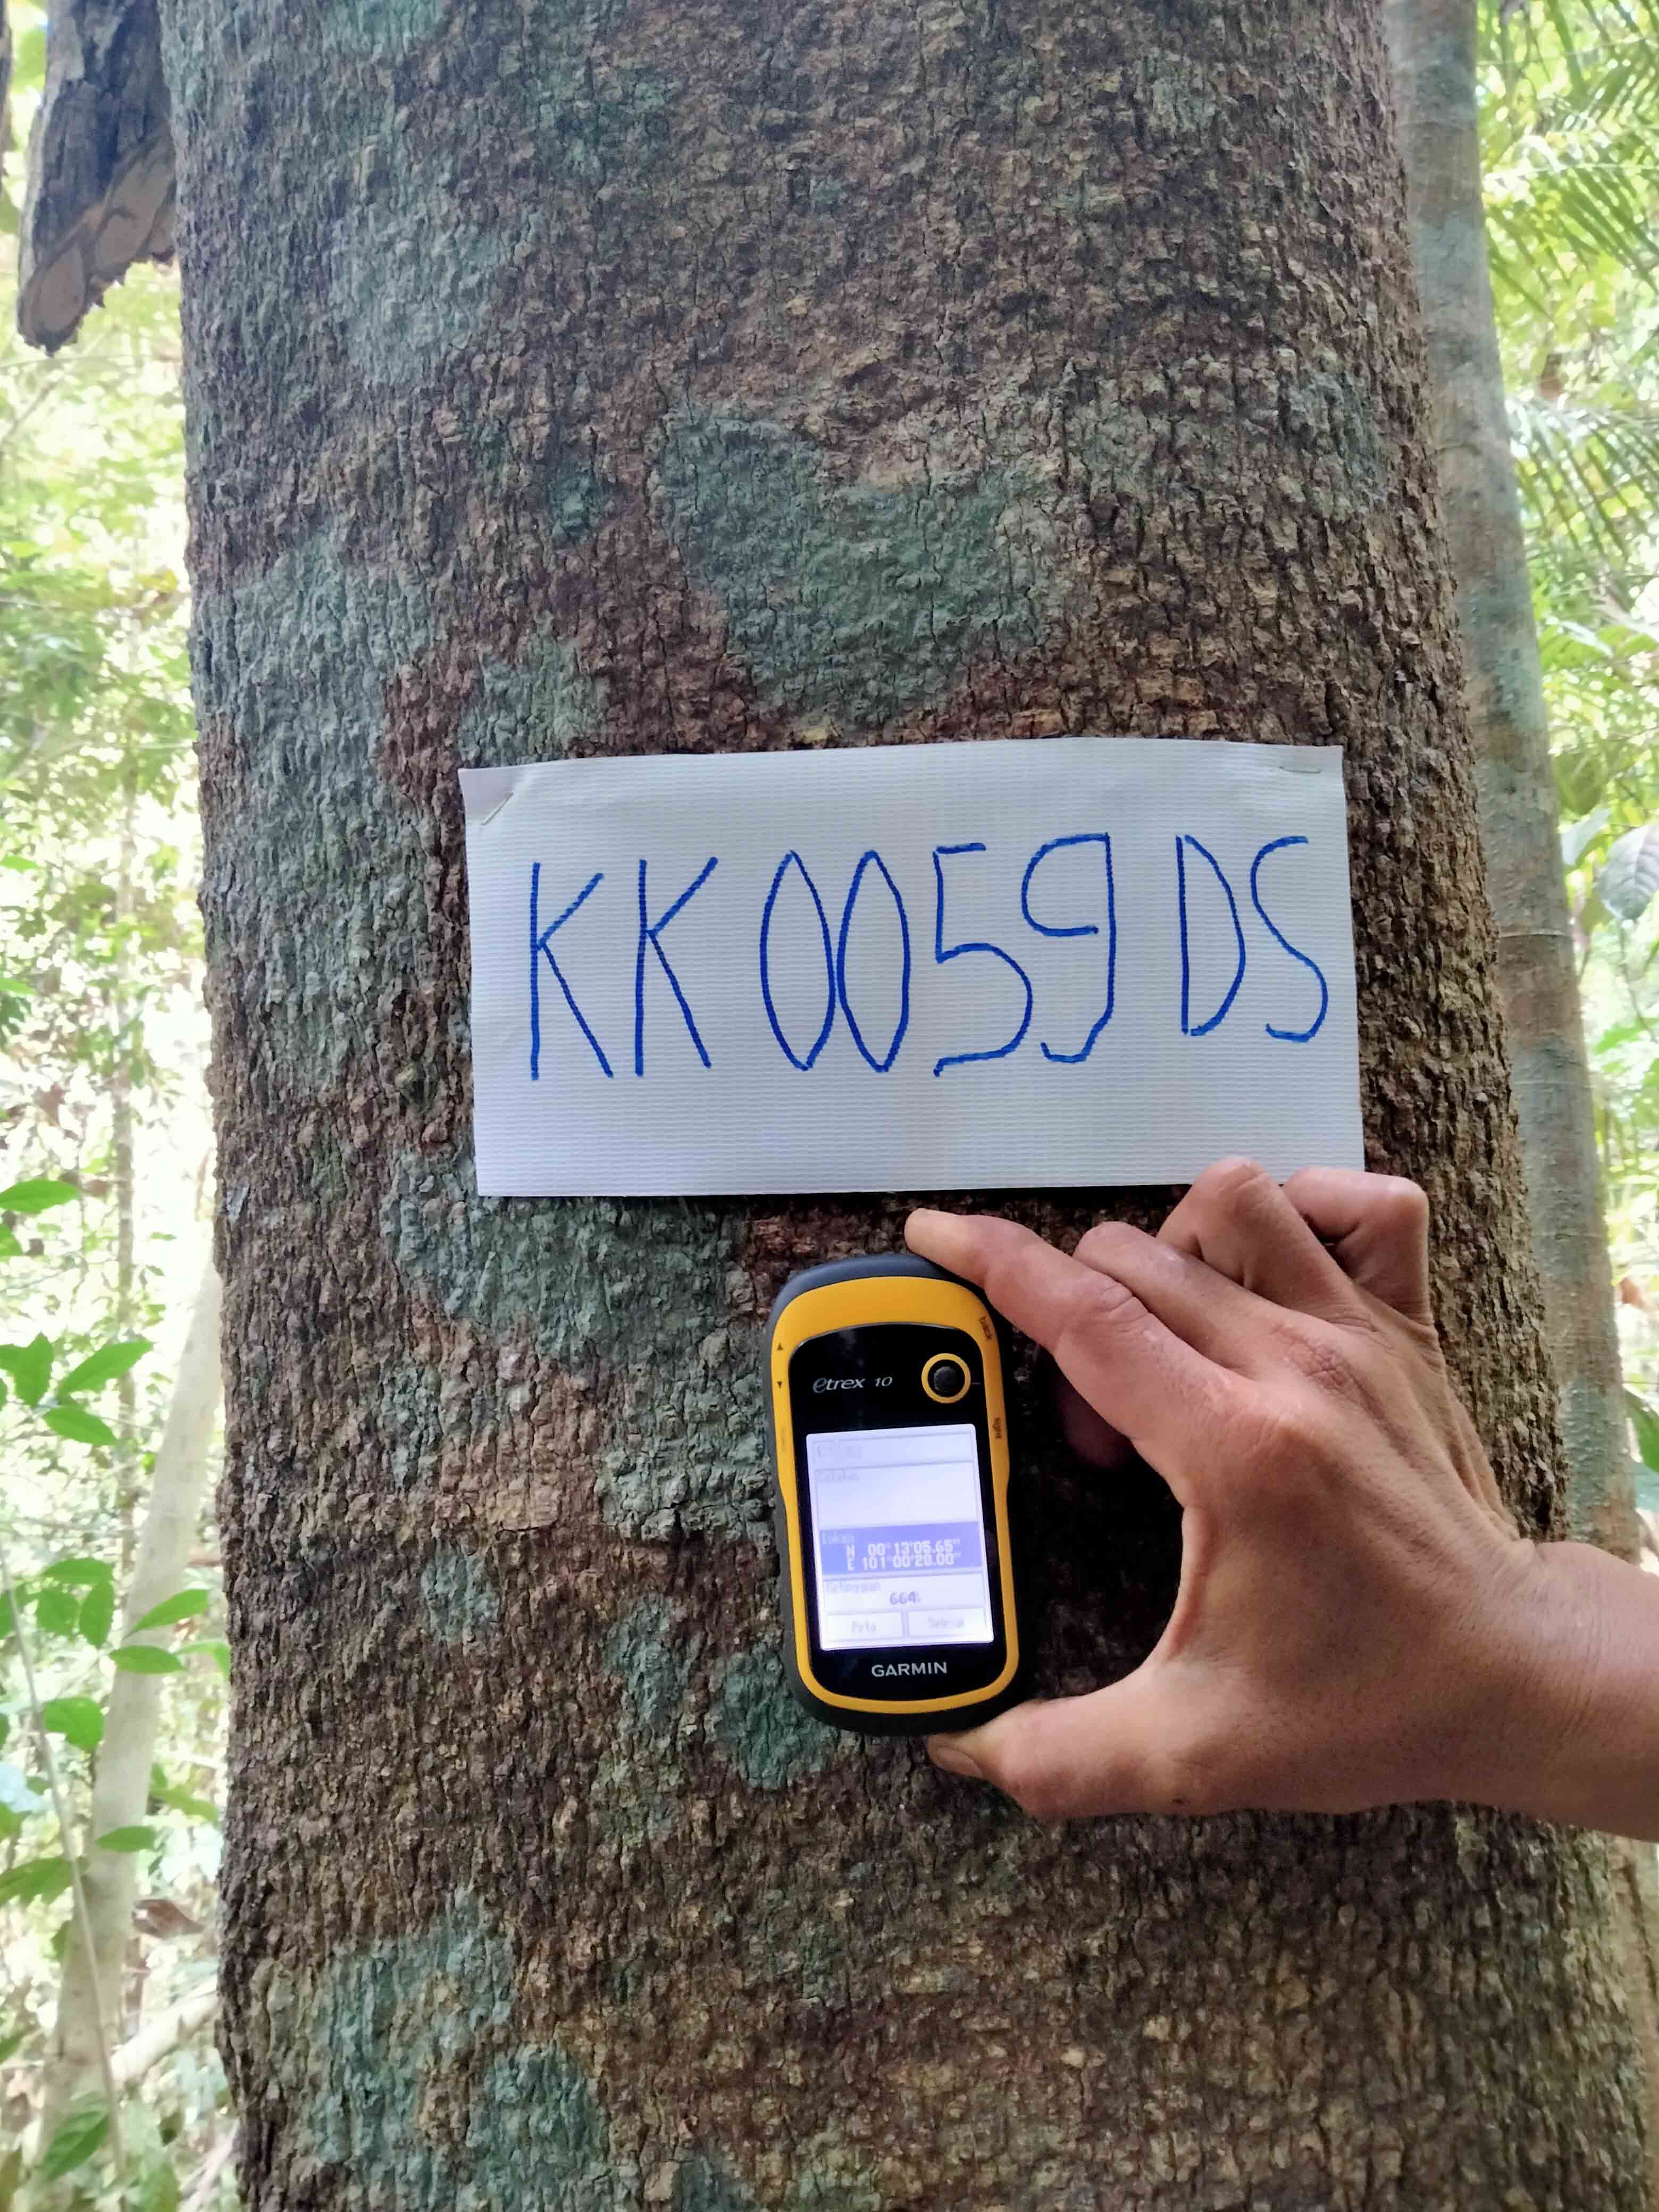 KK 0059 DS
back
etrex 10
light
Catatan
Lokasi
N 00°13'05.65"
E 101°00'20.00"
Ketinggian
664
Peta
Selesai
GARMIN